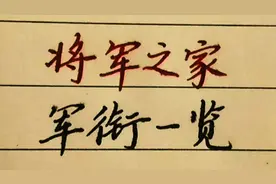 将军之家
军衔一览